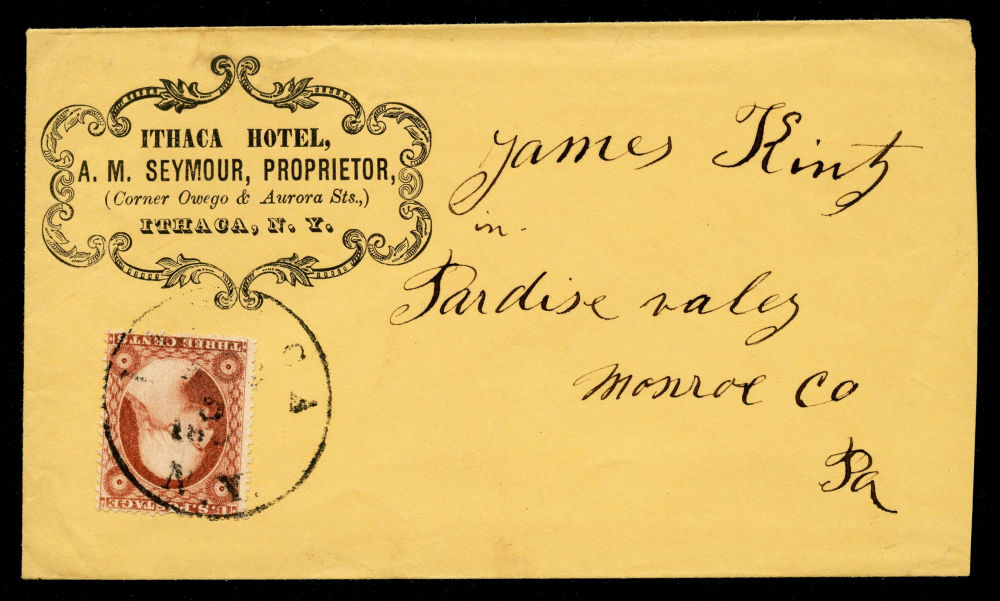 ITHACA HOTEL,
A. M. SEYMOUR, PROPRIETOR,
(Corner Owego & Aurora Sts.,)
ITHACA, N. Y.
James Kintz
in.
Pardise valey
Monroe Co
Pa
THREE CENTS
U.S. POSTAGE
CA
N.Y.